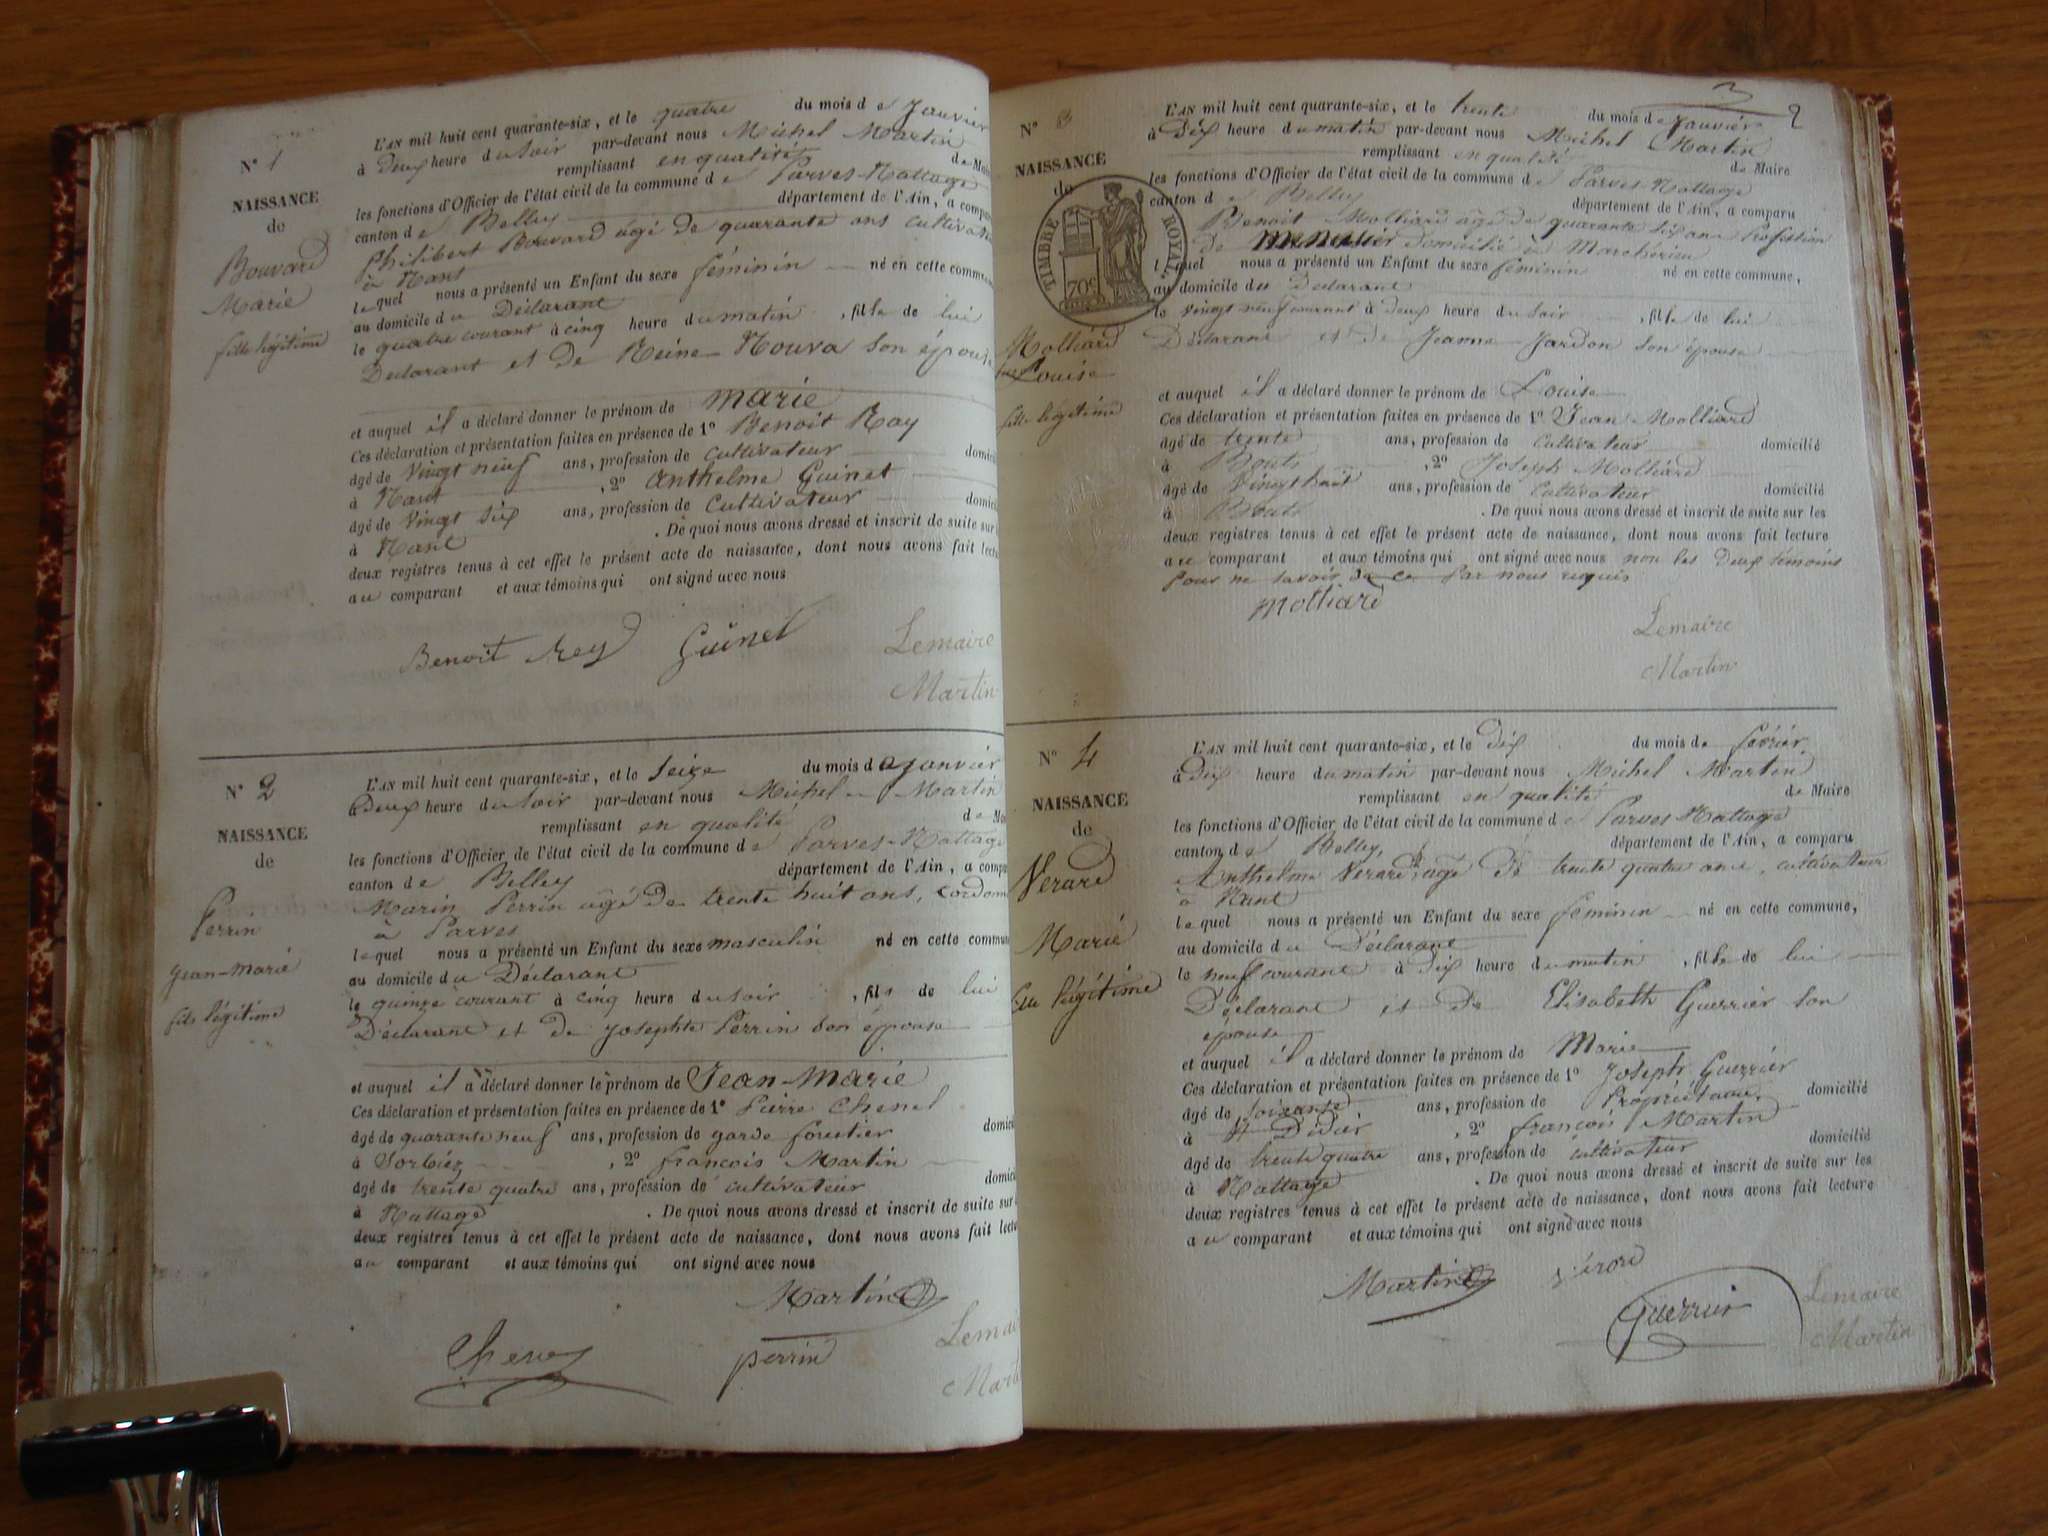 N° 1
NAISSANCE
de
Bouvard
Marie
fille légitime
L'AN mil huit cent quarante-six, et le quatre du mois de Janvier
à Deux heure du Soir par-devant nous Michel Martin
remplissant en qualité de Maire
les fonctions d'Officier de l'état civil de la commune de Parves-Nattage
canton de Belley département de l'Ain, a compar
Philibert Bouvard agé de quarante ans cultivate
à Nant
lequel nous a présenté un Enfant du sexe féminin né en cette commune
au domicile du Déclarant
le quatre courant à cinq heure du matin, fille de lui
Declarant et de Reine Nouva son épouse
et auquel il a déclaré donner le prénom de Marie
Ces déclaration et présentation faites en présence de 1° Benoit Ray
âgé de Vingt neuf ans, profession de Cultivateur domicil
à Nant, 2° Anthelme Guinet
âgé de Vingt Six ans, profession de Cultivateur domici
à Nant. De quoi nous avons dressé et inscrit de suite sur l
deux registres tenus à cet effet le présent acte de naissance, dont nous avons fait lectu
au comparant et aux témoins qui ont signé avec nous
Benoit Rey Guinet Lemaire
Martin
N° 2
NAISSANCE
de
Perrin
Jean-Marie
fils légitime
L'AN mil huit cent quarante-six, et le Seize du mois de Janvier
à Deux heure du Soir par-devant nous Michel Martin
remplissant en qualité de Mai
les fonctions d'Officier de l'état civil de la commune de Parves-Nattage
canton de Belley département de l'Ain, a compa
Marin Perrin agé de trente huit ans, Cordonn
à Parves
lequel nous a présenté un Enfant du sexe masculin né en cette commun
au domicile du Déclarant
le quinze courant à cinq heure du Soir, fils de lui
Déclarant et de Josephte Perrin Son épouse
et auquel il a déclaré donner le prénom de Jean-Marie
Ces déclaration et présentation faites en présence de 1° Pierre Chenel
âgé de quarante neuf ans, profession de garde forestier domici
à Sorbiez, 2° francois Martin
âgé de trente quatre ans, profession de cultivateur domici
à Nattage. De quoi nous avons dressé et inscrit de suite sur
deux registres tenus à cet effet le présent acte de naissance, dont nous avons fait lectu
au comparant et aux témoins qui ont signé avec nous
Martin
perrin Lemai
Mart
3
2
N° 3
NAISSANCE
de
TIMBRE ROYAL
70c
Molliard
Louise
fille légitime
L'AN mil huit cent quarante-six, et le trente du mois de Janvier
à Dix heure du matin par-devant nous Michel Martin
remplissant en qualité de Maire
les fonctions d'Officier de l'état civil de la commune de Parves-Nattage
canton de Belley département de l'Ain, a comparu
Benoit Molliard agé de quarante Six ans Profession
de domicilié à
lequel nous a présenté un Enfant du sexe féminin né en cette commune,
au domicile du Déclarant
le Vingt neuf courant à Deux heure du Soir, fille de lui
Déclarant et de Jeanne Jardon Son épouse
et auquel il a déclaré donner le prénom de Louise
Ces déclaration et présentation faites en présence de 1° Jean Molliard
âgé de trente ans, profession de Cultivateur domicilié
à, 2° Joseph Molliard
âgé de Vingt huit ans, profession de Cultivateur domicilié
à. De quoi nous avons dressé et inscrit de suite sur les
deux registres tenus à cet effet le présent acte de naissance, dont nous avons fait lecture
au comparant et aux témoins qui ont signé avec nous non les Deux témoins
Pour ne savoir de ce Par nous requis
Molliard
Lemaire
Martin
N° 4
NAISSANCE
de
Verard
Marie
fille légitime
L'AN mil huit cent quarante-six, et le Dix du mois de février
à Dix heure du matin par-devant nous Michel Martin
remplissant en qualité de Maire
les fonctions d'Officier de l'état civil de la commune de Parves-Nattage
canton de Belley, département de l'Ain, a comparu
Anthelme Verard, agé de trente quatre ans, cultivateur
à Nant
lequel nous a présenté un Enfant du sexe féminin né en cette commune,
au domicile du Déclarant
le neuf courant à Dix heure du matin, fille de lui
Déclarant et de Elisabeth Guerrier Son
épouse
et auquel il a déclaré donner le prénom de Marie
Ces déclaration et présentation faites en présence de 1° Joseph Guerrier
âgé de soixante ans, profession de Propriétaire, domicilié
à St Didier, 2° francois Martin
âgé de trente quatre ans, profession de cultivateur domicilié
à Nattage. De quoi nous avons dressé et inscrit de suite sur les
deux registres tenus à cet effet le présent acte de naissance, dont nous avons fait lecture
au comparant et aux témoins qui ont signé avec nous
Martin Guerrier Lemaire
Martin